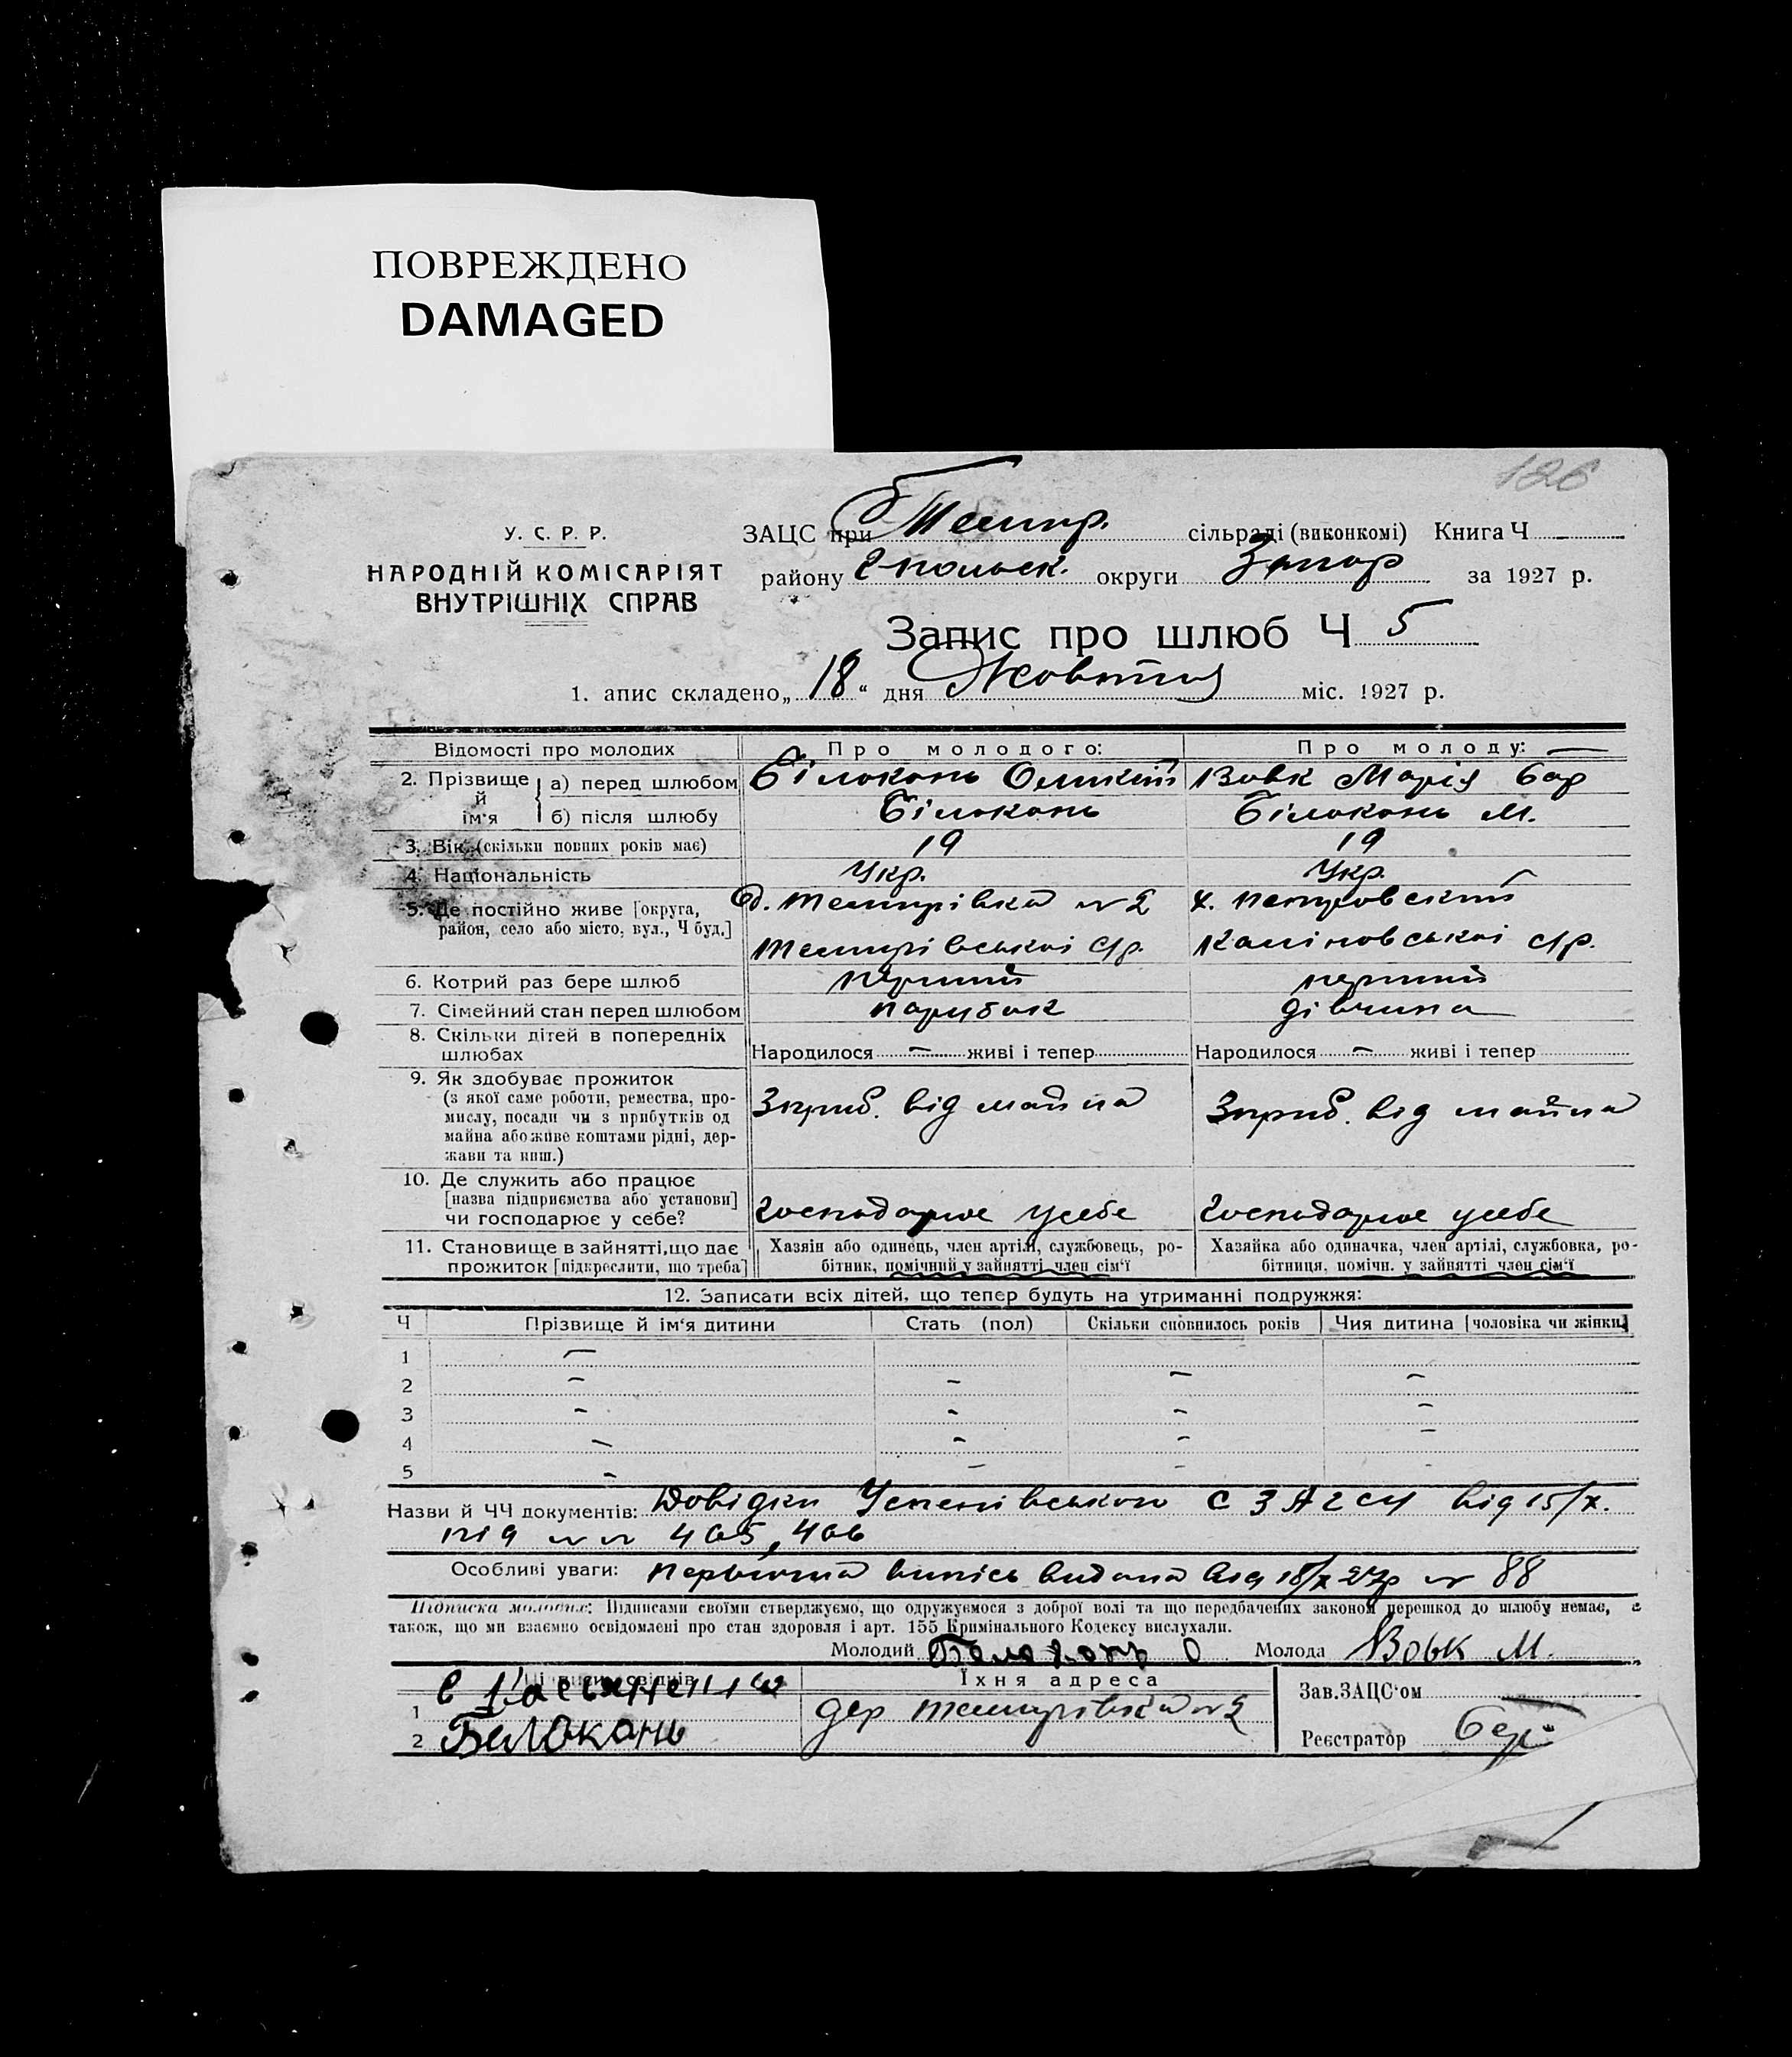 ПОВРЕЖДЕНО
DAMAGED
126
У. С. Р. Р.
НАРОДНІЙ КОМІСАРІЯТ
ВНУТРІШНІХ СПРАВ
ЗАЦС при Темир. сільраді (виконкомі) Книга Ч
району Гпольск. округи Запор за 1927 р.
Запис про шлюб Ч 5
1. апис складено „18“ дня Жовтня міс. 1927 р.
Відомості про молодих Про молодого: Про молоду:
2. Прізвище й ім'я а) перед шлюбом Білоконь Вовк Марія
б) після шлюбу Білоконь Білоконь М.
3. Вік (скільки повних років має) 19 19
4. Національність Укр. Укр.
5. Де постійно живе [округа, д. Темирівка № 2 х. Петровский
район, село або місто, вул., Ч буд.] Темирівської с/р. Каліновської с/р.
6. Котрий раз бере шлюб перший перший
7. Сімейний стан перед шлюбом парубок дівчина
8. Скільки дітей в попередніх
шлюбах Народилося – живі і тепер Народилося – живі і тепер
9. Як здобуває прожиток
(з якої саме роботи, ремества, про-
мислу, посади чи з прибутків од Зприб. від майна Зприб. від майна
майна або живе коштами рідні, дер-
жави та инш.)
10. Де служить або працює
[назва підприємства або установи]
чи господарює у себе? Господарює усебе Господарює усебе
11. Становище в зайнятті, що дає Хазяїн або одинець, член артілі, службовець, ро- Хазяйка або одиначка, член артілі, службовка, ро-
прожиток [підкреслити, що треба] бітник, помічний у зайнятті член сім'ї бітниця, помічн. у зайнятті член сім'ї
12. Записати всіх дітей, що тепер будуть на утриманні подружжя:
Ч Прізвище й ім'я дитини Стать (пол) Скільки сповнилось років Чия дитина [чоловіка чи жінки]
1 –
2 – – – –
3 – – – –
4 – – – –
5 – – –
Назви й ЧЧ документів: Довідки Успенівського СЗАГСУ від 15/X.
під №№ 405, 406
Особливі уваги: первична випісь видана від 18/X 27р № 88
Підписка молодих: Підписами своїми стверджуємо, що одружуємося з доброї волі та що передбачених законом перешкод до шлюбу немає, а
також, що ми взаємно освідомлені про стан здоровля і арт. 155 Кримінального Кодексу вислухали.
Молодий Белоконь О Молода Вовк М.
Їхня адреса
Зав.ЗАЦС'ом
1 дер Темирівка № 2
2 Белоконь
Реєстратор